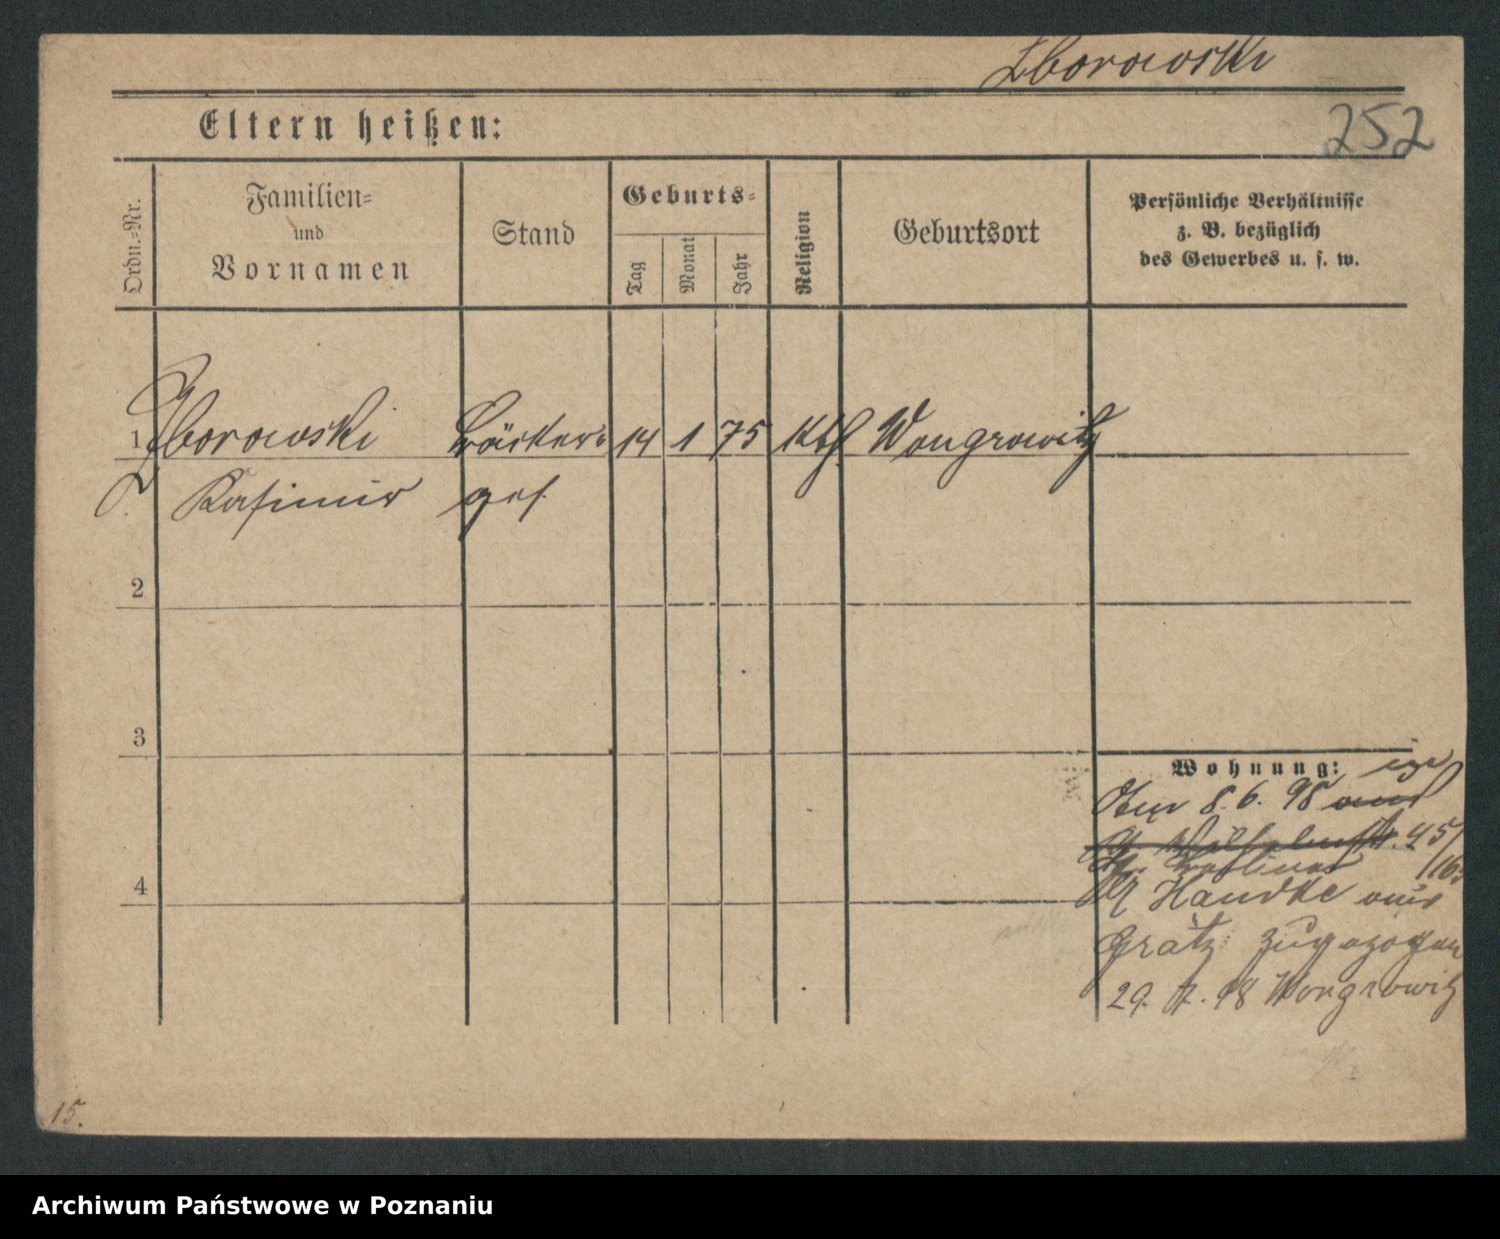 Zborowski
252
Eltern heißen:
Ordn.-Nr.
Familien-
und
Vornamen
Stand
Geburts-
Tag
Monat
Jahr
Religion
Geburtsort
Persönliche Verhältnisse
z. B. bezüglich
des Gewerbes u. s. w.
1 Zborowski Bäcker- 14 1 75 kth. Wongrowitz
Kasimir ges.
2
3
4
Wohnung:
8. 6. 98
45/
Gr. Berliner /16.
Handke aus
Grätz zugezogen
29. 7. 98 Wongrowitz
15.
Archiwum Państwowe w Poznaniu